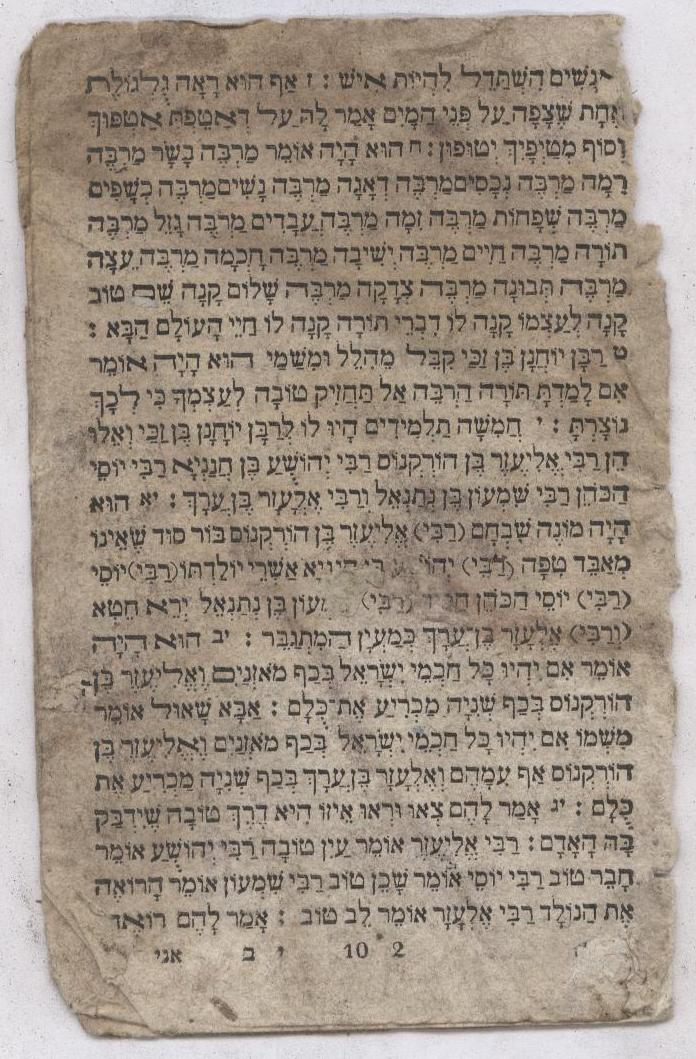 אֲנָשִׁים הִשְׁתַּדֵּל לִהְיוֹת אִישׁ : ז אַף הוּא רָאָה גֻּלְגּוֹלֶת
אַחַת שֶׁצָּפָה עַל פְּנֵי הַמַּיִם אָמַר לָהּ עַל דְּאַטֵפְתְּ אַטְפוּךְ
וְסוֹף מְטִיפָיִךְ יְטוּפוּן : ח הוּא הָיָה אוֹמֵר מַרְבֶּה בָשָׂר מַרְבֶּה
רִמָּה מַרְבֶּה נְכָסִים מַרְבֶּה דְאָגָה מַרְבֶּה נָשִׁים מַרְבֶּה כְשָׁפִים
מַרְבֶּה שְׁפָחוֹת מַרְבֶּה זִמָּה מַרְבֶּה עֲבָדִים מַרְבֶּה גָזֵל מַרְבֶּה
תוֹרָה מַרְבֶּה חַיִּים מַרְבֶּה יְשִׁיבָה מַרְבֶּה חָכְמָה מַרְבֶּה עֵצָה
מַרְבֶּה תְּבוּנָה מַרְבֶּה צְדָקָה מַרְבֶּה שָׁלוֹם קָנָה שֵׁם טוֹב
קָנָה לְעַצְמוֹ קָנָה לוֹ דִּבְרֵי תוֹרָה קָנָה לוֹ חַיֵּי הָעוֹלָם הַבָּא :
ט רַבָּן יוֹחָנָן בֶּן זַכַּי קִבֵּל מֵהִלֵּל וּמִשַּׁמַּי הוּא הָיָה אוֹמֵר
אִם לָמַדְתָּ תּוֹרָה הַרְבֵּה אַל תַּחֲזִיק טוֹבָה לְעַצְמְךָ כִּי לְכָךְ
נוֹצָרְתָּ : י חֲמִשָּׁה תַלְמִידִים הָיוּ לוֹ לְרַבָּן יוֹחָנָן בֶּן זַכַּי וְאֵלּוּ
הֵן רַבִּי אֱלִיעֶזֶר בֶּן הוֹרְקְנוֹס רַבִּי יְהוֹשֻׁעַ בֶּן חֲנַנְיָא רַבִּי יוֹסֵי
הַכֹּהֵן רַבִּי שִׁמְעוֹן בֶּן נְתַנְאֵל וְרַבִּי אֶלְעָזָר בֶּן עֲרָךְ : יא הוּא
הָיָה מוֹנֶה שְׁבָחָם (רַבִּי) אֱלִיעֶזֶר בֶּן הוֹרְקְנוֹס בּוֹר סוּד שֶׁאֵינוֹ
מְאַבֵּד טִפָּה (רַבִּי) אַשְׁרֵי יוֹלַדְתּוֹ (רַבִּי) יוֹסֵי
(רַבִּי) יוֹסֵי הַכֹּהֵן (רַבִּי) בֶּן נְתַנְאֵל יְרֵא חֵטְא
(וְרַבִּי) אֶלְעָזָר בֶּן עֲרָךְ כְּמַעְיָן הַמִּתְגַּבֵּר : יב הוּא הָיָה
אוֹמֵר אִם יִהְיוּ כָּל חַכְמֵי יִשְׂרָאֵל בְּכַף מֹאזְנַיִם וֶאֱלִיעֶזֶר בֶּן
הוֹרְקְנוֹס בְּכַף שְׁנִיָּה מַכְרִיעַ אֶת־כֻּלָּם : אַבָּא שָׁאוּל אוֹמֵר
מִשְּׁמוֹ אִם יִהְיוּ כָּל חַכְמֵי יִשְׂרָאֵל בְּכַף מֹאזְנַיִם וֶאֱלִיעֶזֶר בֶּן
הוֹרְקְנוֹס אַף עִמָּהֶם וְאֶלְעָזָר בֶּן עֲרָךְ בְּכַף שְׁנִיָּה מַכְרִיעַ אֶת
כֻּלָּם : יג אָמַר לָהֶם צְאוּ וּרְאוּ אֵיזוֹ הִיא דֶּרֶךְ טוֹבָה שֶׁיִּדְבַּק
בָּהּ הָאָדָם : רַבִּי אֱלִיעֶזֶר אוֹמֵר עַיִן טוֹבָה רַבִּי יְהוֹשֻׁעַ אוֹמֵר
חָבֵר טוֹב רַבִּי יוֹסֵי אוֹמֵר שָׁכֵן טוֹב רַבִּי שִׁמְעוֹן אוֹמֵר הָרוֹאֶה
אֶת הַנּוֹלָד רַבִּי אֶלְעָזָר אוֹמֵר לֵב טוֹב : אָמַר לָהֶם רוֹאֶה
2 10 י ב אני